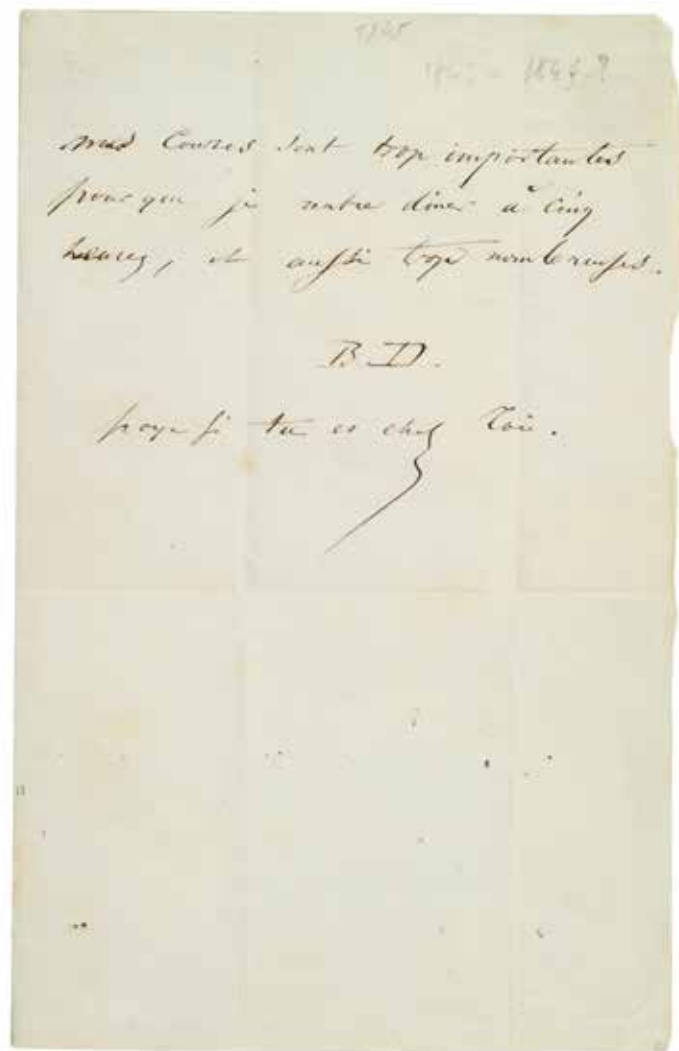 1845
1847?
mes Courses sont trop importantes
pour que je rentre dîner à cinq
heures, et aussi trop nombreuses.
B. D.
paye si tu es chez Toi.